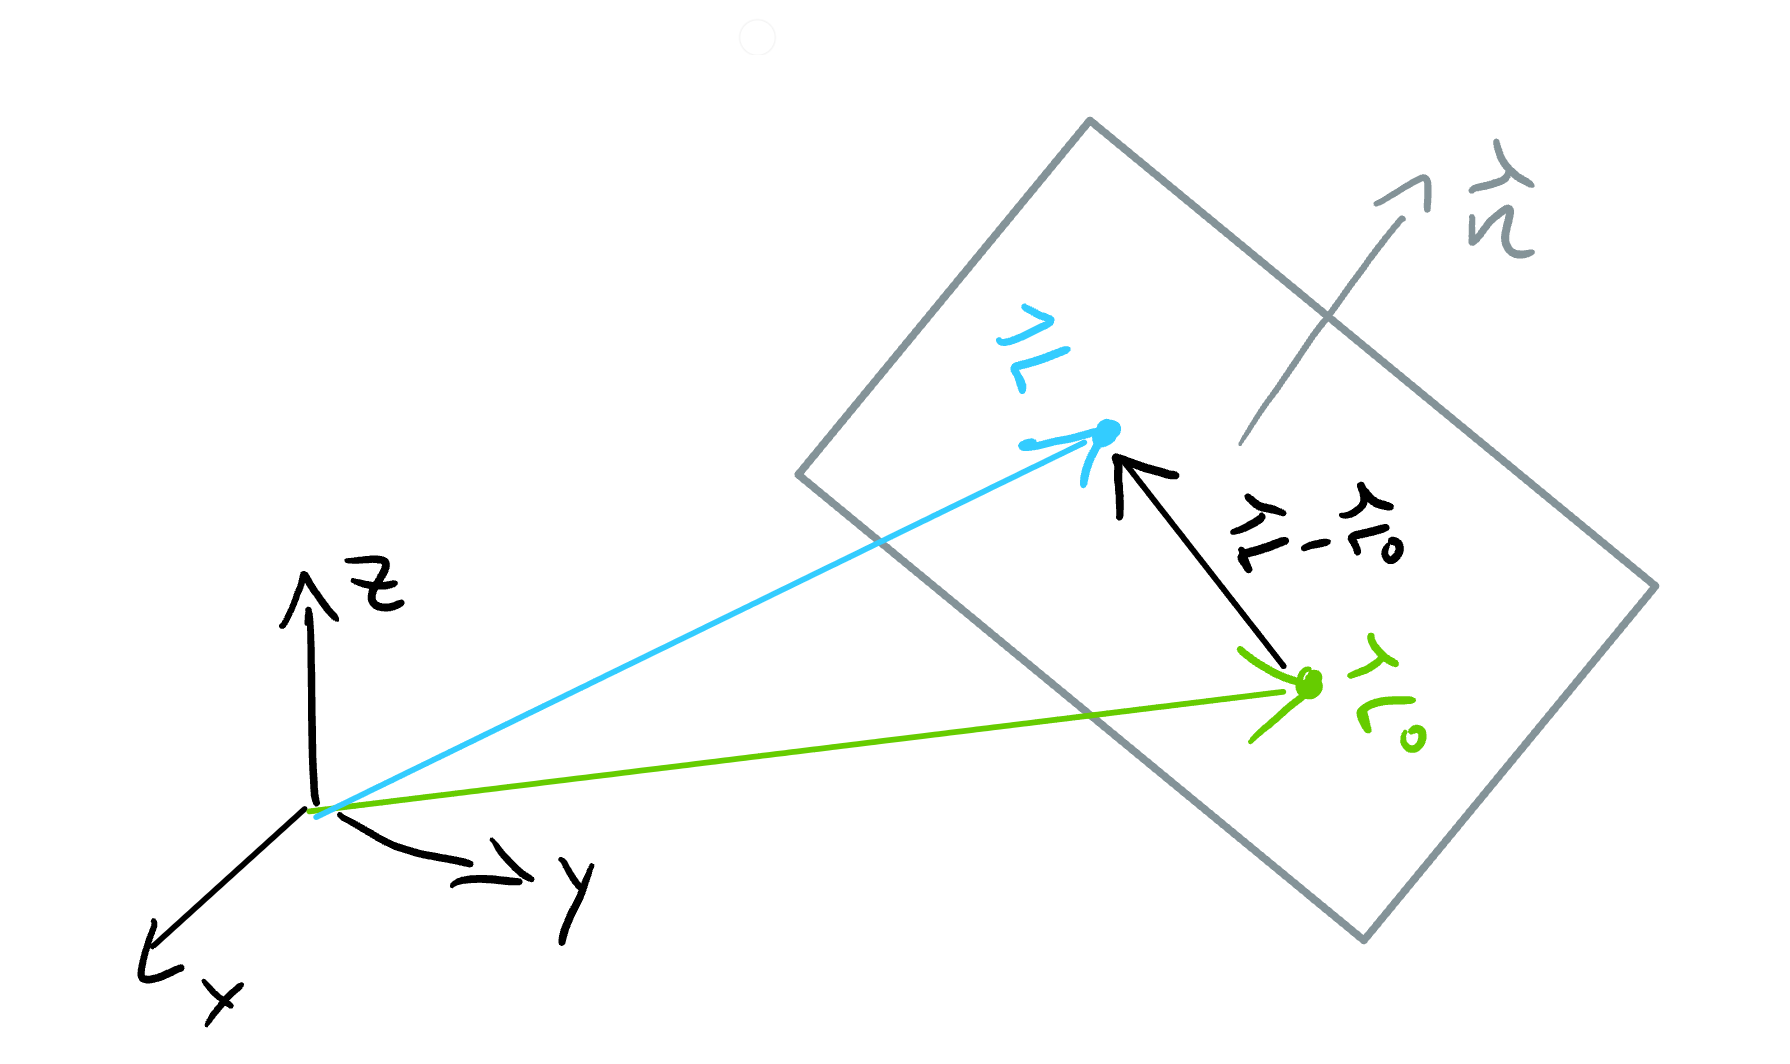 n⃗
r⃗
r⃗ - r⃗₀
z
r⃗₀
y
x